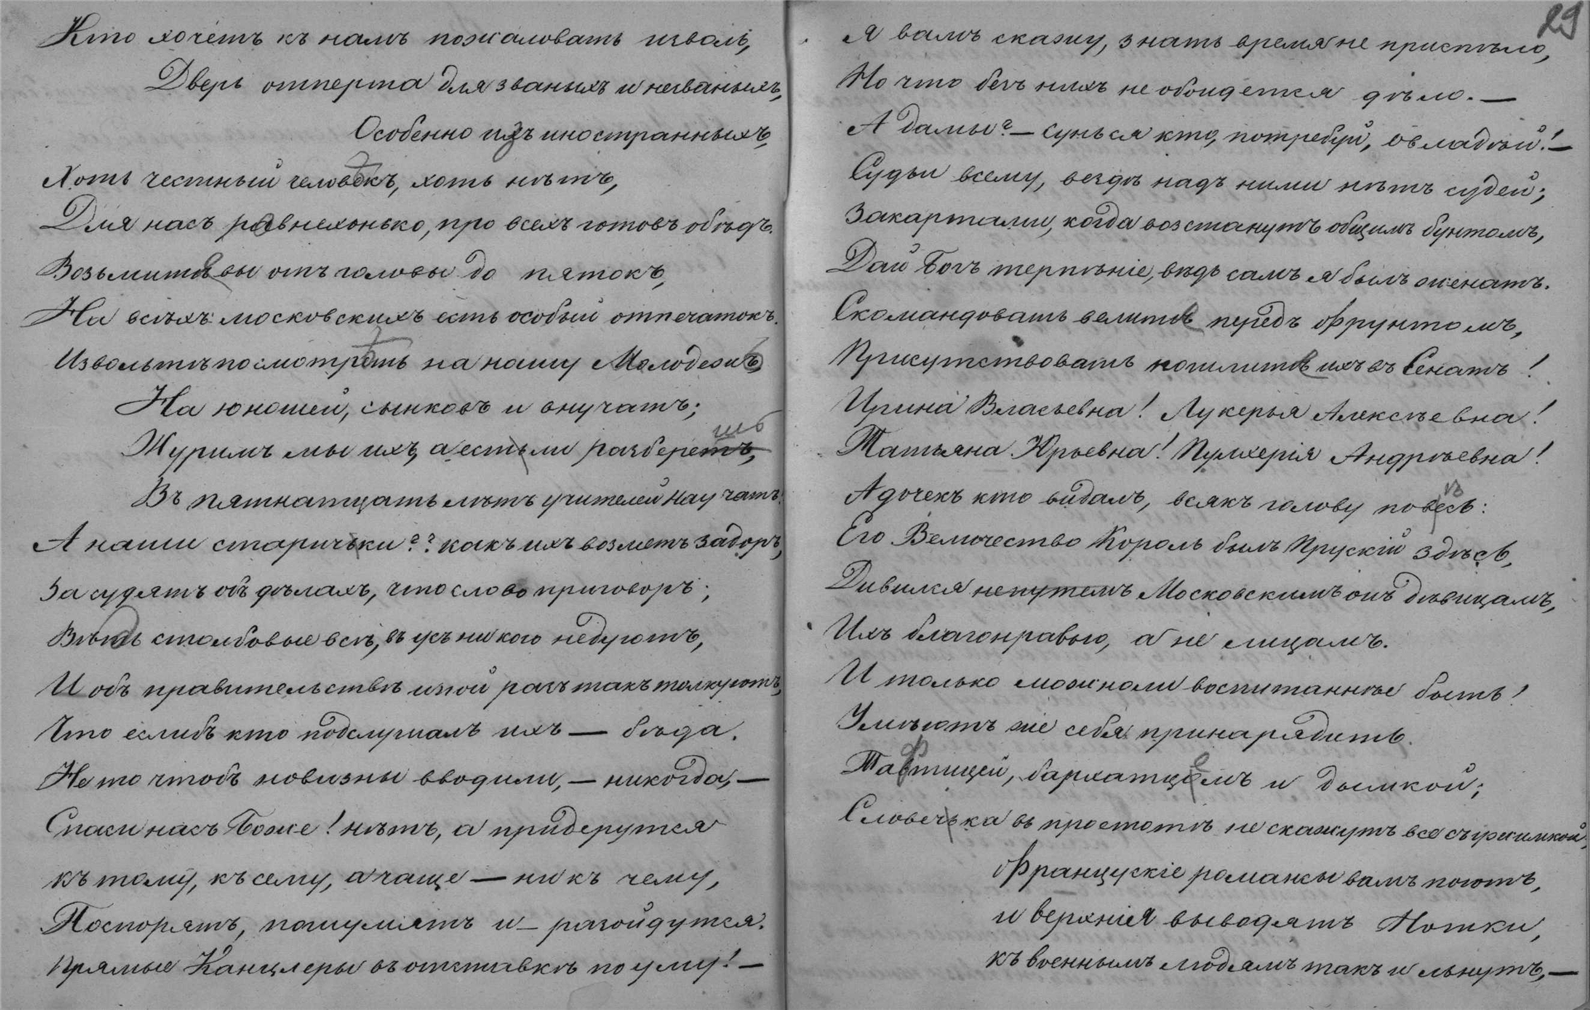 Кто хочетъ къ намъ пожаловать изволь,
Дверь отперта для званыхъ и незваныхъ,
Особенно изъ иностранныхъ,
Хоть честный человекъ, хоть нѣтъ,
Для насъ равнехонько, про всехъ готовъ обѣдъ.
Возьмите вы отъ головы до пятокъ,
На всѣхъ московскихъ есть особый отпечатокъ.
Извольте посмотреть на нашу Молодежь,
На юношей, сынковъ и внучатъ;
Журимъ мы ихъ, а естьли разберешь,
Въ пятнатцать лѣтъ учителей научатъ.
А наши старички?? какъ ихъ возметъ задоръ,
Засудятъ объ дѣлахъ, что слово приговоръ;
Вѣдь столбовые всѣ, въ усъ ни кого недуютъ,
И объ правительствѣ иной разъ такъ толкуютъ,
Что еслибъ кто подслушалъ ихъ — бѣда.
Не то чтобъ новизны вводили, — никогда, —
Спаси насъ Боже! нѣтъ, а придерутся
къ тому, къ сему, а чаще — ни къ чему,
Поспорятъ, пошумятъ и — разойдутся.
Прямые Канцлеры въ отставкѣ по уму! —
29
Я вамъ скажу, знать время не приспѣло,
Но что безъ нихъ не обойдется дѣло. —
А дамы? — сунься кто, потребуй, овладѣй! —
Судьи всему, вездѣ надъ ними нѣтъ судей;
Закартами, когда возстанутъ общимъ бунтомъ,
Дай Богъ терпѣніе, вѣдь самъ я былъ женатъ.
Скомандовать велите передъ фрунтомъ,
Присутствовать пошлите ихъ въ Сенатъ!
Ирина Власьевна! Лукерья Алексѣевна!
Татьяна Юрьевна! Пулхерія Андрѣевна!
А дочекъ кто видалъ, всякъ голову повесь:
Его Величество Король былъ Прускій здѣсь,
Дивился непутемъ Московскимъ онъ дѣвицамъ,
Ихъ благонравью, а не лицамъ.
И только можноли воспитаннѣе быть!
Умѣютъ же себя принарядить
Тафтицей, бархатцемъ и дымкой;
Словечка въ простотѣ не скажутъ все съ ужимкой,
Французскіе романсы вамъ поютъ,
и верхнія выводятъ Нотки,
къ военнымъ людямъ такъ и льнутъ, —